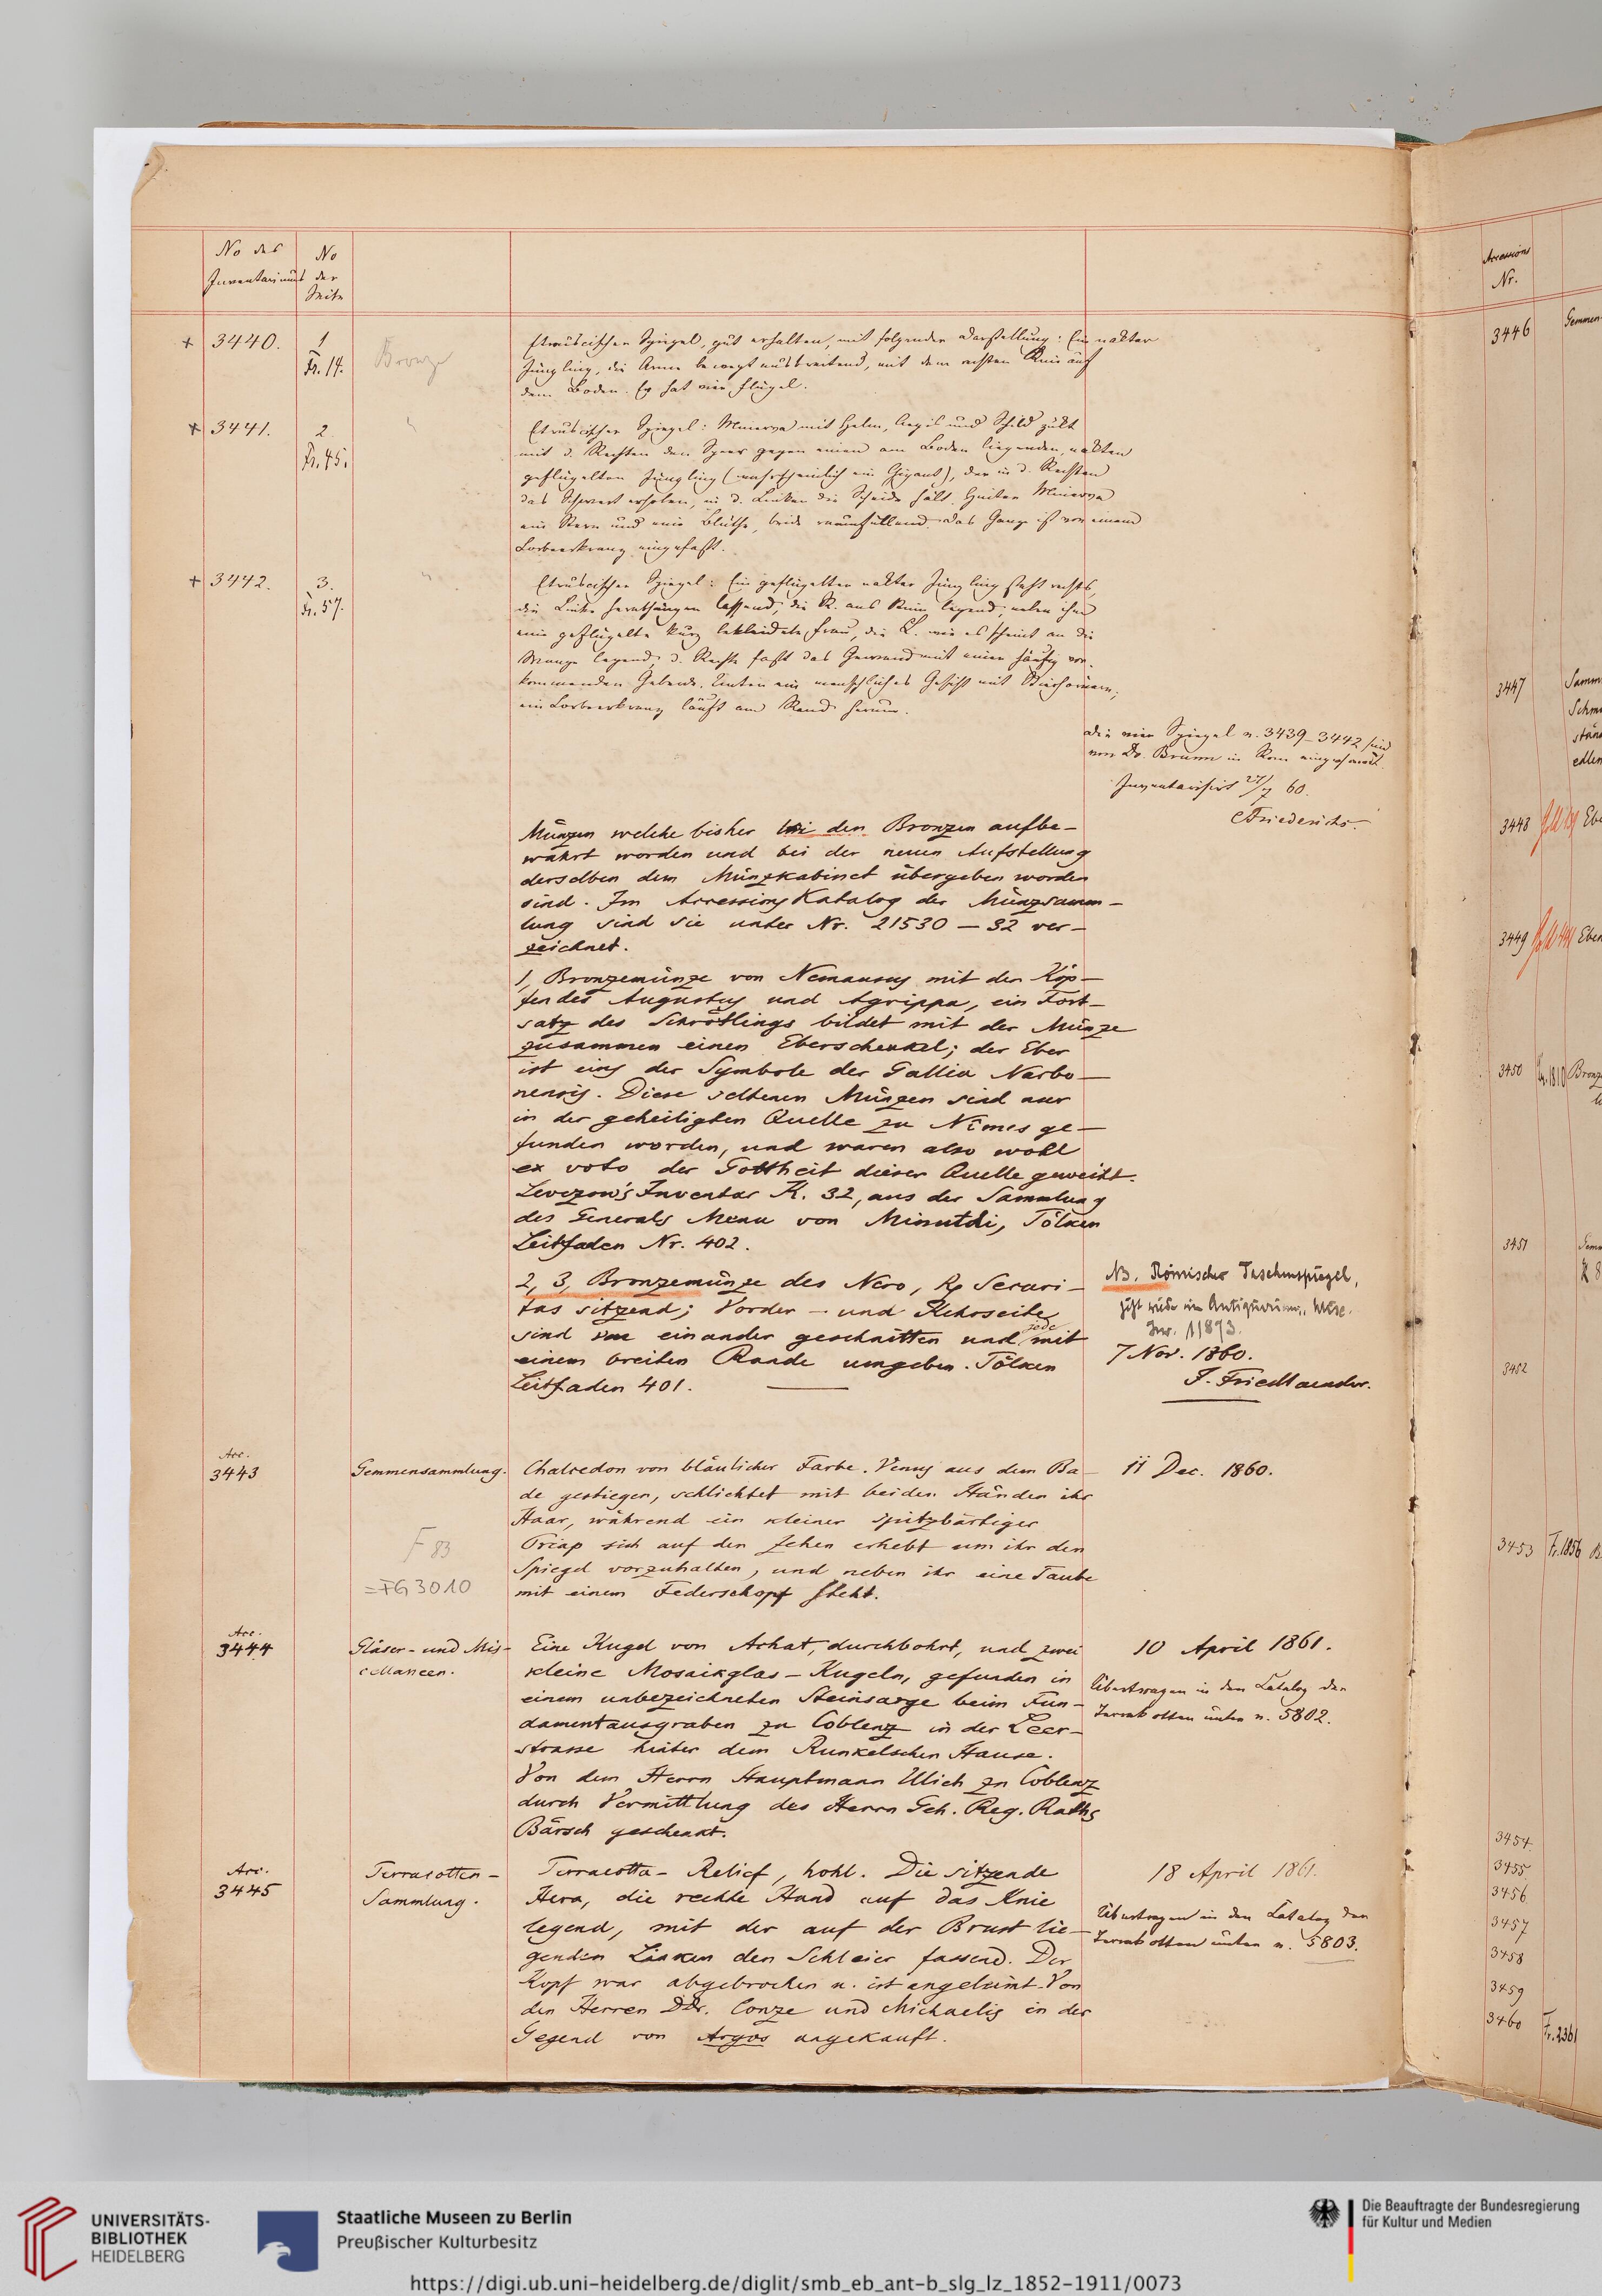 No des
Inventariums
No
der
Seite
+ 3440.
1
Fr. 14.
Bronze
Etruscischer Spiegel, gut erhalten, mit folgender Darstellung: Ein nakter
Jüngling, die Arme bewegt ausbreitend, mit dem rechten Knie auf
dem Boden. Er hat vier Flügel.
+ 3441.
2
Fr. 45.
"
Etruscischer Spiegel: Minerva mit Helm, Aegis und Schild zükt
mit d. Rechten den Speer gegen einen am Boden liegenden, nakten
geflügelten Jüngling (wahrscheinlich ein Gigant), der in d. Rechten
das Schwert erhoben, in d. Linken die Scheide hält. Hinter Minerva
ein Stern und eine Blüthe, beide raumfüllend. Das Ganze ist von einem
Lorbeerkranz eingefasst.
+ 3442.
3.
Fr. 57.
"
Etruscischer Spiegel: Ein geflügelter nakter Jüngling steht rechts,
die Linke herabhängen lassend, die R. ans Kinn legend; neben ihm
eine geflügelte kurz bekleidete Frau, die L. wie es scheint an die
Wange legend, d. Rechte fasst das Gewand mit einer häufig vor-
kommenden Geberde. Unten ein menschliches Gesicht mit
ein Lorbeerkranz läuft am Rand herum.
Die vier Spiegel n. 3439-3442 sind
von Dr. Brunn in Rom eingesandt.
Inventarisirt 27/7 60.
CFriederichs.
Münzen welche bisher bei den Bronzen aufbe-
wahrt worden und bei der neuen Aufstellung
derselben dem Münzkabinet übergeben worden
sind. Im Accessions Katalog der Münzsamm-
lung sind sie unter Nr. 21530 — 32 ver-
zeichnet.
1, Bronzemünze von Nemausus mit den Köp-
fen des Augustus und Agrippa, ein Fort-
satz des Schrötlings bildet mit der Münze
zusammen einen Eberschenkel; der Eber
ist eins der Symbole der Gallia Narbo-
nensis. Diese seltenen Münzen sind nur
in der geheiligten Quelle zu Nîmes ge-
funden worden, und waren also wohl
ex voto der Gottheit dieser Quelle geweiht.
Levezow's Inventar K. 32, aus der Sammlung
des Generals Menu von Minutoli, Tölken
Leitfaden Nr. 402.
2, 3, Bronzemünze des Nero, Rf Securi-
tas sitzend; Vorder- und Kehrseite
sind von einander geschnitten und jede mit
einem breiten Rande umgeben. Tölken
Leitfaden 401.
NB. Römischer Taschenspiegel,
jetzt wieder im Antiquarium, Misc.
Inv. 11893.
7 Nov. 1860.
J. Friedlaender.
Acc.
3443
Gemmensammlung.
F 83
=FG 3010
Chalcedon von bläulicher Farbe. Venus aus dem Ba-
de gestiegen, schlichtet mit beiden Händen ihr
Haar, während ein kleiner spitzbärtiger
Priap sich auf den Zehen erhebt um ihr den
Spiegel vorzuhalten, und neben ihr eine Taube
mit einem Federschopf steht.
11 Dec. 1860.
Acc.
3444
Gläser- und Mis-
cellaneen.
Eine Kugel von Achat, durchbohrt, und zwei
kleine Mosaikglas-Kugeln, gefunden in
einem unbezeichneten Steinsarge beim Fun-
damentausgraben zu Coblenz in der Leer-
strasse hinter dem Runkelschen Hause.
Von dem Herrn Hauptmann Ulich zu Coblenz
durch Vermittlung des Herrn Geh. Reg. Raths
Bärsch geschenkt.
10 April 1861.
Übertragen in den Catalog der
Terrakotten unter n. 5802.
Acc.
3445
Terracotten-
Sammlung.
Terracotta-Relief, hohl. Die sitzende
Hera, die rechte Hand auf das Knie
legend, mit der auf der Brust lie-
genden Linken den Schleier fassend. Der
Kopf war abgebrochen u. ist angeleimt. Von
den Herren DDr. Conze und Michaelis in der
Gegend von Argos angekauft.
18 April 1861.
Übertragen in den Catalog der
Terrakotten unter n. 5803.
Accessions
Nr.
3446
Gemmen
3447
Samm
Schm
stän
edlen
3448
Ebe
3449
Eben
3450
Fr. 1810
Bronz
3451
Gemm
3452
3453
Fr. 1856
B
3454
3455
3456
3457
3458
3459
3460
Fr. 2361
UNIVERSITÄTS-
BIBLIOTHEK
HEIDELBERG
Staatliche Museen zu Berlin
Preußischer Kulturbesitz
Die Beauftragte der Bundesregierung
für Kultur und Medien
https://digi.ub.uni-heidelberg.de/diglit/smb_eb_ant-b_slg_lz_1852-1911/0073